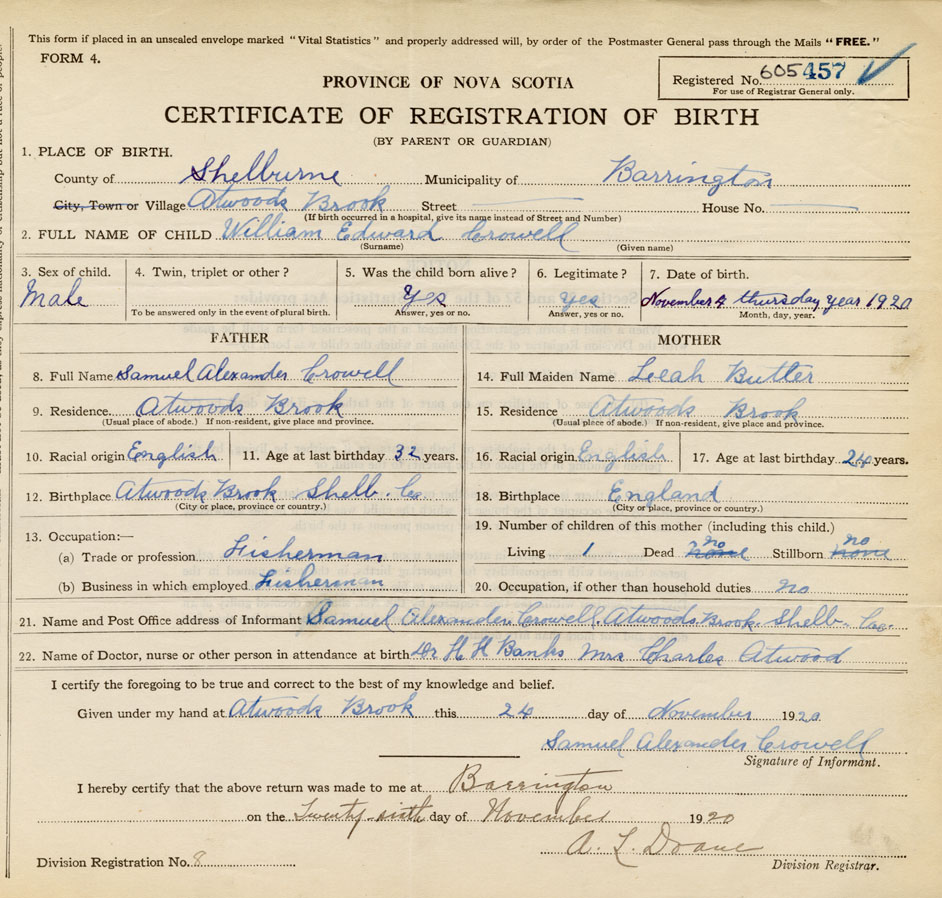 This form if placed in an unsealed envelope marked "Vital Statistics" and properly addressed will, by order of the Postmaster General pass through the Mails "FREE."
FORM 4.
PROVINCE OF NOVA SCOTIA
Registered No. 605457
For use of Registrar General only.
CERTIFICATE OF REGISTRATION OF BIRTH
(BY PARENT OR GUARDIAN)
1. PLACE OF BIRTH.
County of Shelburne Municipality of Barrington
City, Town or Village Atwoods Brook Street House No.
(If birth occurred in a hospital, give its name instead of Street and Number)
2. FULL NAME OF CHILD William Edward Crowell
(Surname) (Given name)
3. Sex of child. 4. Twin, triplet or other? 5. Was the child born alive? 6. Legitimate? 7. Date of birth.
Male Yes Yes November 4 thursday year 1920
To be answered only in the event of plural birth. Answer, yes or no. Answer, yes or no. Month, day, year.
FATHER
8. Full Name Samuel Alexander Crowell
9. Residence Atwoods Brook
(Usual place of abode.) If non-resident, give place and province.
10. Racial origin English 11. Age at last birthday 32 years.
12. Birthplace Atwoods Brook Shelb. Co.
(City or place, province or country.)
13. Occupation:—
(a) Trade or profession Fisherman
(b) Business in which employed Fisherman
MOTHER
14. Full Maiden Name Leeah Butler
15. Residence Atwoods Brook
(Usual place of abode.) If non-resident, give place and province.
16. Racial origin English 17. Age at last birthday 24 years.
18. Birthplace England
(City or place, province or country.)
19. Number of children of this mother (including this child.)
Living 1 Dead none no Stillborn none no
20. Occupation, if other than household duties no
21. Name and Post Office address of Informant Samuel Alexander Crowell. Atwoods Brook. Shelb. Co.
22. Name of Doctor, nurse or other person in attendance at birth Dr H H Banks Mrs Charles Atwood
I certify the foregoing to be true and correct to the best of my knowledge and belief.
Given under my hand at Atwoods Brook this 24 day of November 1920
Samuel Alexander Crowell
Signature of Informant.
I hereby certify that the above return was made to me at Barrington
on the Twenty-sixth day of November 1920
A. L. Doane
Division Registration No. 8 Division Registrar.